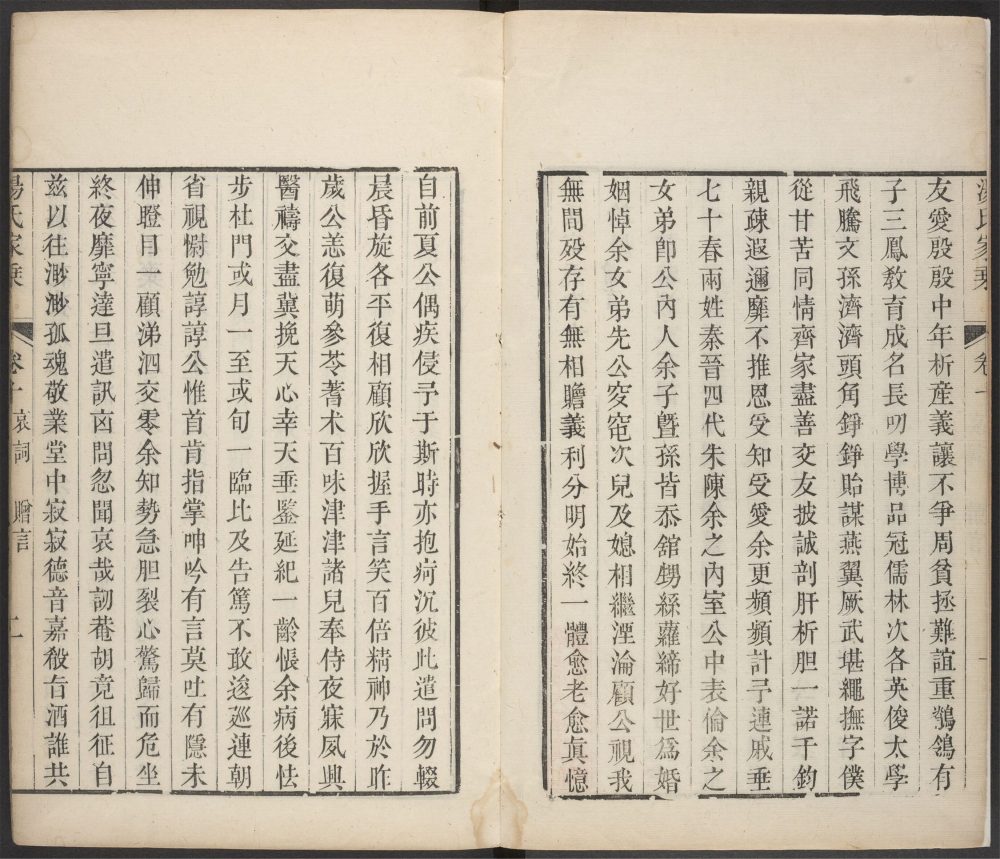 湯氏家乘 卷十
友愛殷殷中年析産義讓不爭周貧拯難誼重鶺鴒有
子三鳳敎育成名長明學博品冠儒林次各英俊太學
飛騰文孫濟濟頭角錚錚貽謀燕翼厥武堪繩撫字僕
從甘苦同情齊家盡善交友披誠剖肝析胆一諾千鈞
親疎遐邇靡不推恩受知受愛余更頻頻計予連戚垂
七十春兩姓秦晉四代朱陳余之內室公中表倫余之
女弟卽公內人余子曁孫皆忝舘甥絲蘿締好世爲婚
姻悼余女弟先公窀穸次兒及媳相繼湮淪顧公視我
無問殁存有無相贍義利分明始終一體愈老愈眞憶
自前夏公偶疾侵予于斯時亦抱疴沉彼此遣問勿輟
晨昏旋各平復相顧欣欣握手言笑百倍精神乃於昨
歲公恙復萌參苓蓍术百味津津諸兒奉侍夜寐夙興
醫禱交盡冀挽天心幸天垂鑒延紀一齡悵余病後怯
步杜門或月一至或旬一臨比及告篤不敢逡巡連朝
省視慰勉諄諄公惟首肯指掌呻吟有言莫吐有隱未
伸瞪目一顧涕泗交零余知勢急胆裂心驚歸而危坐
終夜靡寧達旦遣訊凶問忽聞哀哉訒菴胡竟徂征自
兹以往渺渺孤魂敬業堂中寂寂德音嘉殽旨酒誰共
湯氏家乘 卷十 哀詞 贈言 二